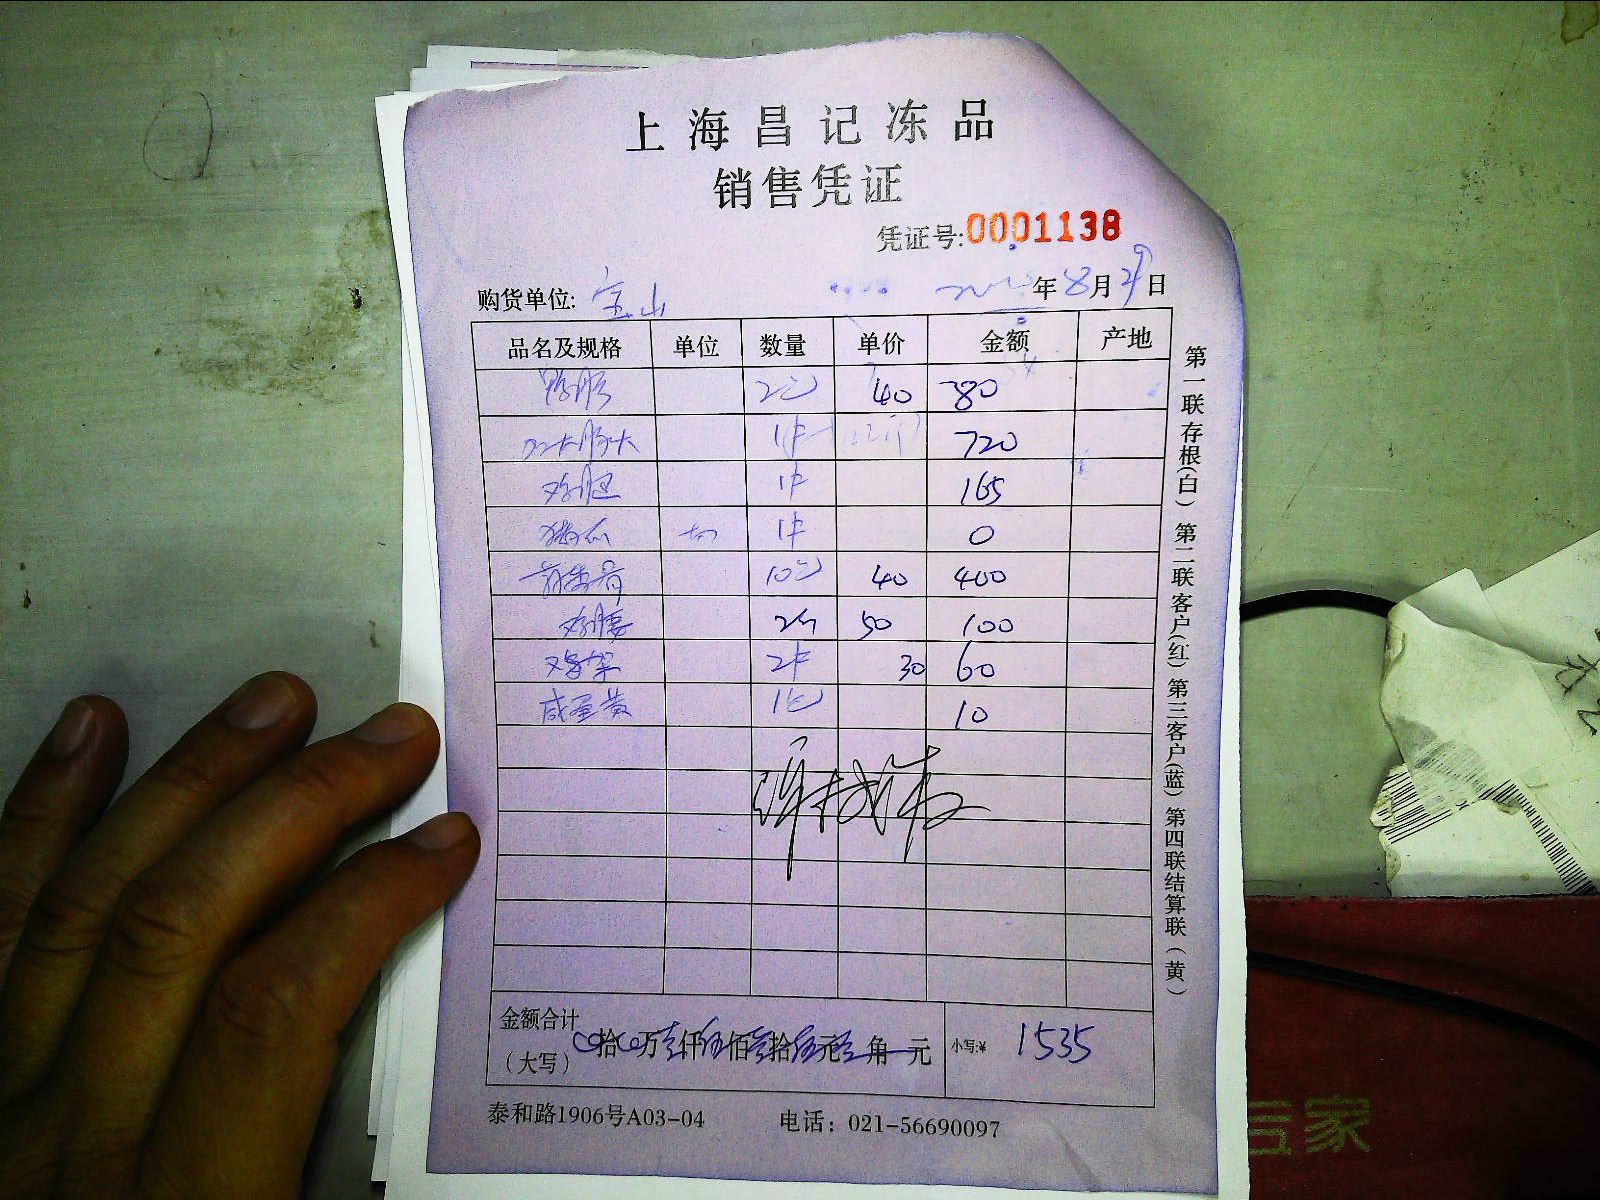 上海昌记冻品
销售凭证
凭证号:0001138
购货单位: 宝山 年8月29日
品名及规格 单位 数量 单价 金额 产地
2包 40 80
1件 720
1件 165
1件 0
10包 40 400
鸡腰 50 100
鸡架 2件 30 60
咸蛋黄 1包 10
金额合计
(大写) 拾 万壹仟伍佰叁拾伍元 角 元 小写:¥ 1535
泰和路1906号A03-04 电话: 021-56690097
第一联存根(白) 第二联客户(红) 第三客户(蓝) 第四联结算联(黄)